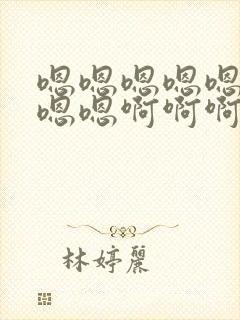 嗯嗯嗯嗯嗯
嗯嗯啊啊啊
林婷麗